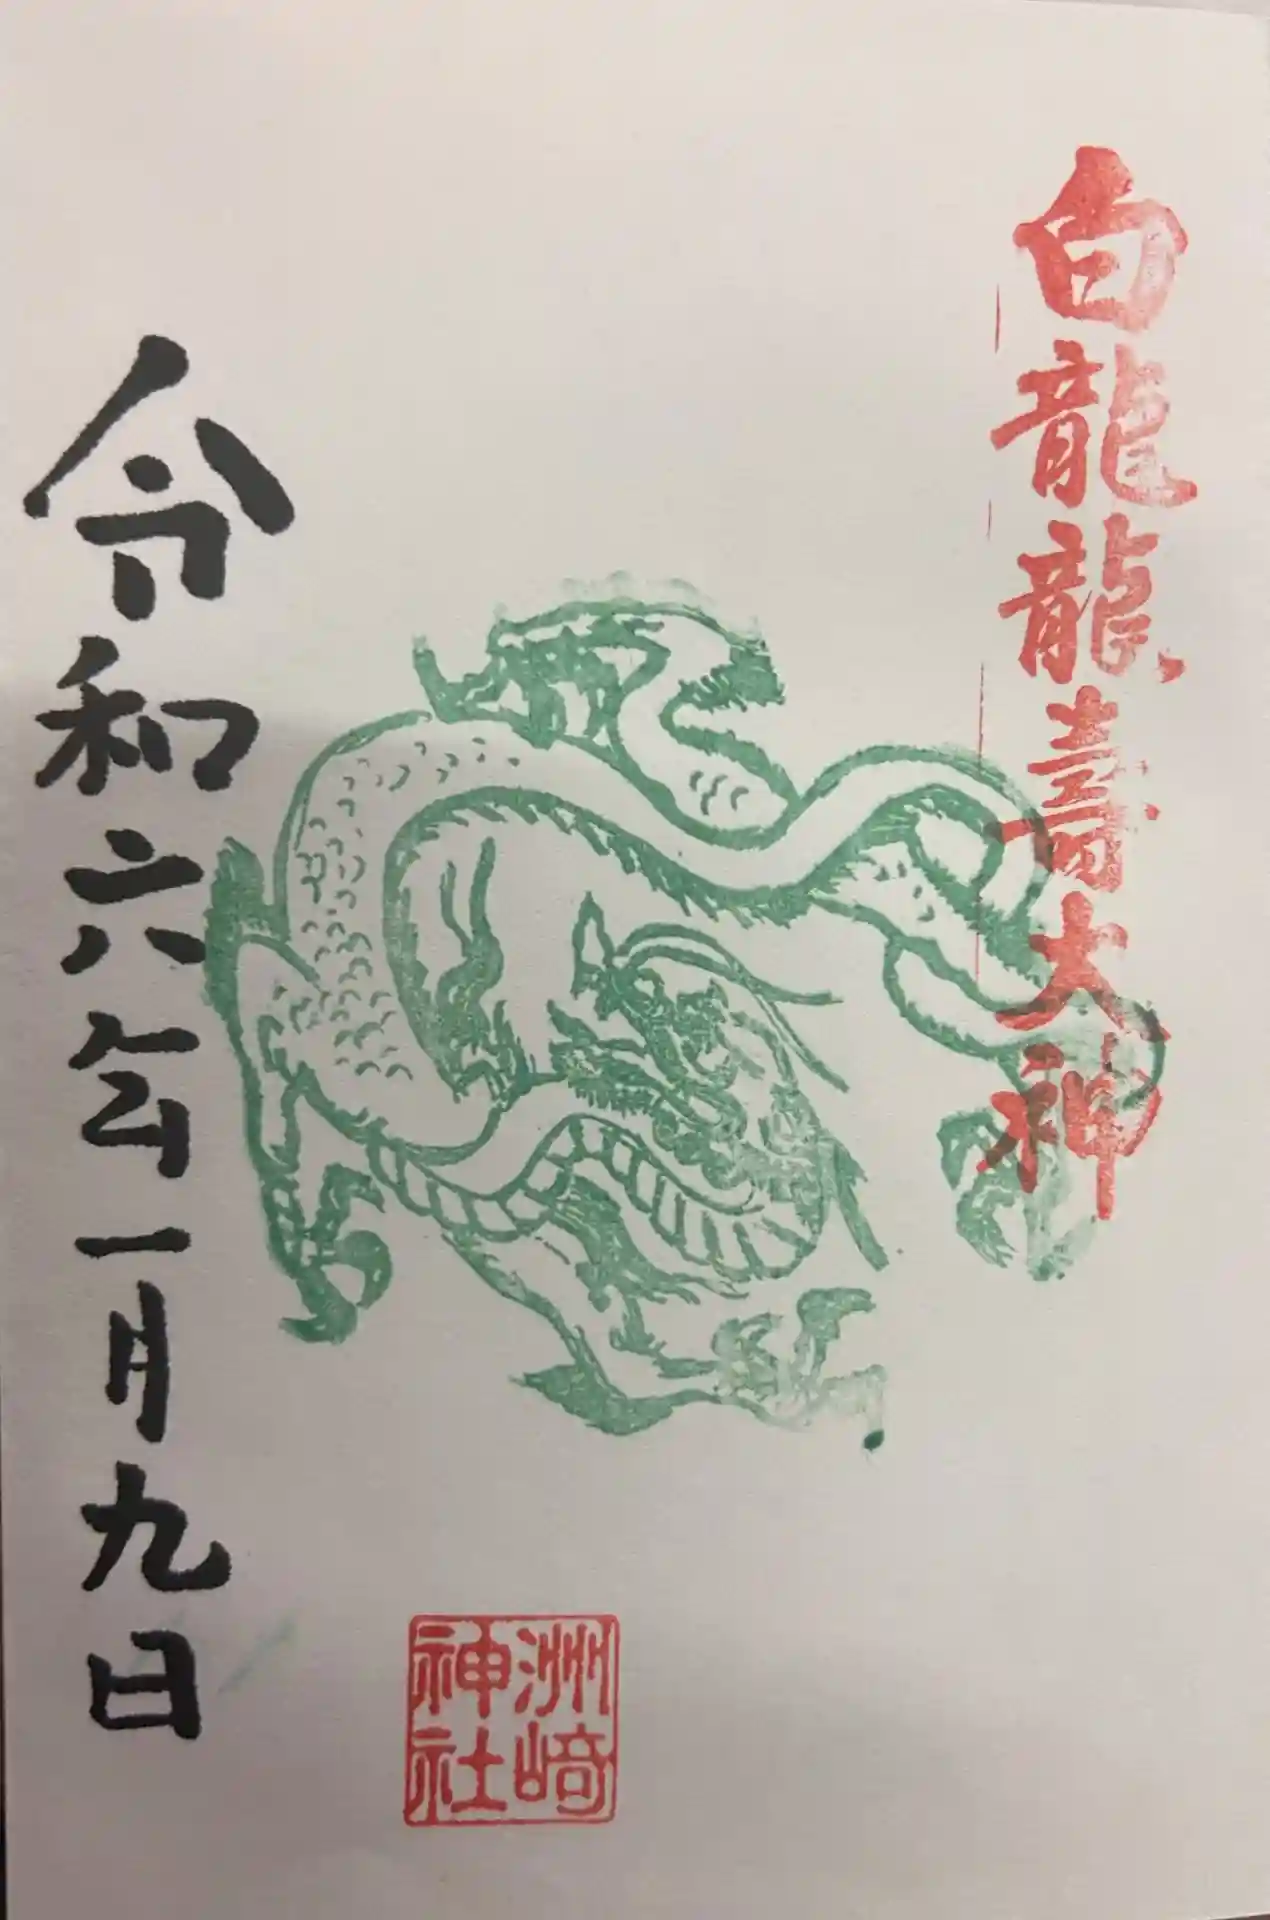 白龍龍壽大神
洲崎
神社
令和六年一月九日